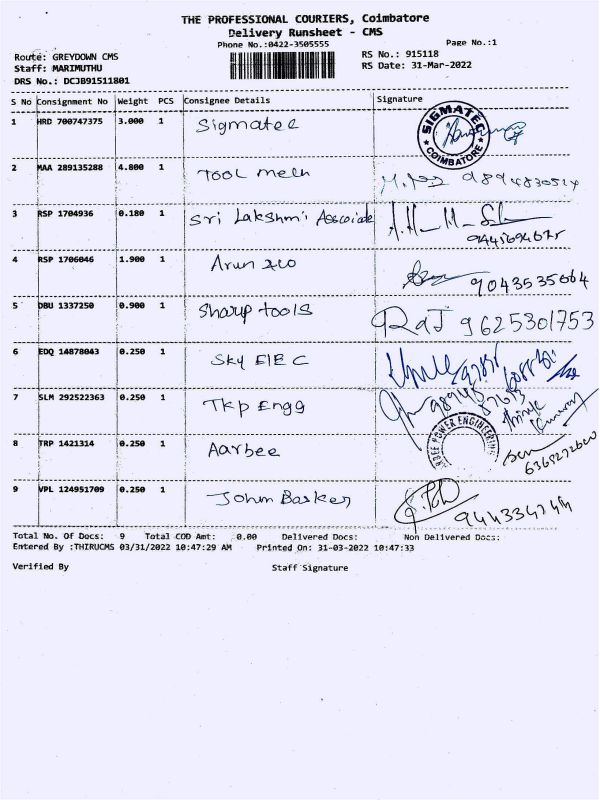 THE PROFESSIONAL COURIERS, Coimbatore
Delivery Runsheet - CMS
Phone No.:0422-3505555
Page No.:1
Route: GREYDOWN CMS
RS No.: 915118
Staff: MARIMUTHU
RS Date: 31-Mar-2022
DRS No.: DCJB91511801
S No Consignment No Weight PCS Consignee Details Signature
1 HRD 700747375 3.000 1 Sigmatec
SIGMATEC COIMBATORE
2 MAA 289135288 4.800 1 TOOL mech
3 RSP 1704936 0.180 1 Sri Lakshmi Associate
4 RSP 1706046 1.900 1 Arun
9043535664
5 DBU 1337250 0.900 1 Sharp tools Raj 9625301753
6 EDQ 14878043 0.250 1 Sky ElEC
7 SLM 292522363 0.250 1 TKP Engg
8 TRP 1421314 0.250 1 Aarbee
POWER ENGINEERING
9 VPL 124951709 0.250 1 John Basker
Total No. Of Docs: 9 Total COD Amt: 0.00 Delivered Docs: Non Delivered Docs:
Entered By :THIRUCMS 03/31/2022 10:47:29 AM Printed On: 31-03-2022 10:47:33
Verified By Staff Signature